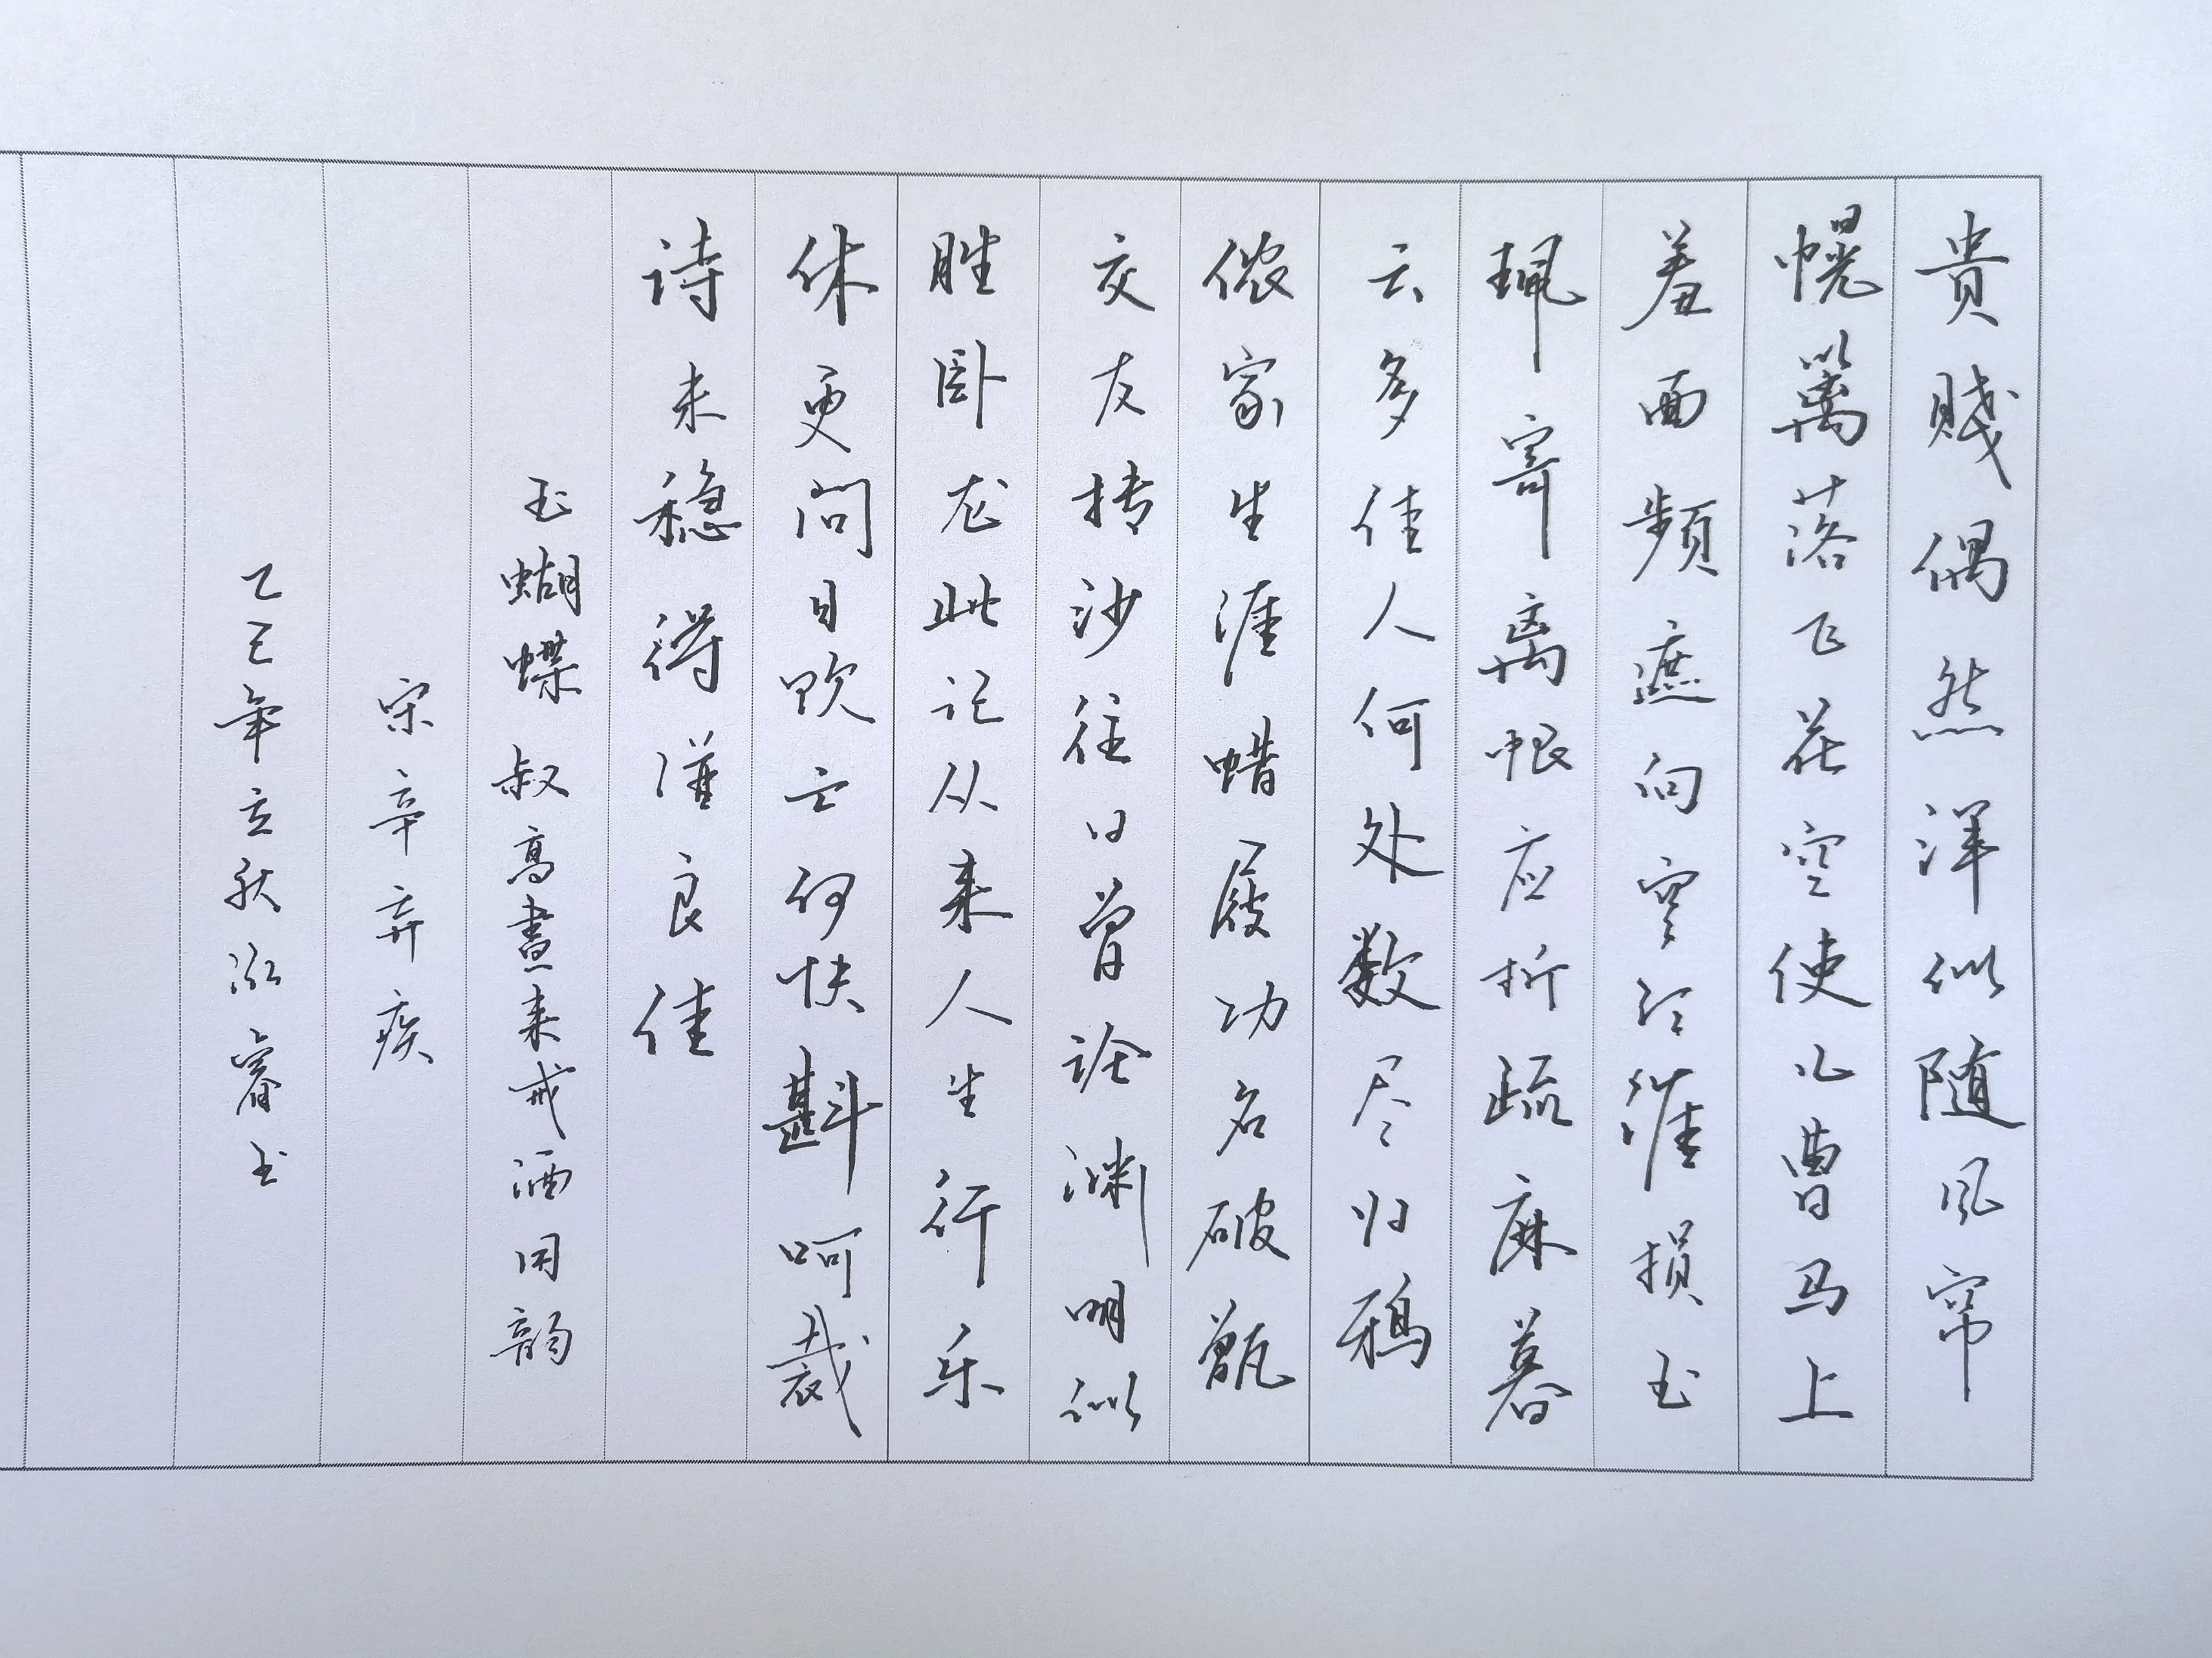 贵贱偶然浑似随风帘
幌篱落飞花空使儿曹马上
羞面频遮向空江谁损玉
珮寄离恨应折疏麻暮
云多佳人何处数尽归鸦
侬家生涯蜡屐功名破甑
交友抟沙往日曾论渊明似
胜卧龙此记从来人生行乐
休更问日饮亡何快斟呵裁
诗未稳得酒良佳
玉蝴蝶 叔高書来戒酒用韵
宋辛弃疾
乙巳年立秋泓睿书